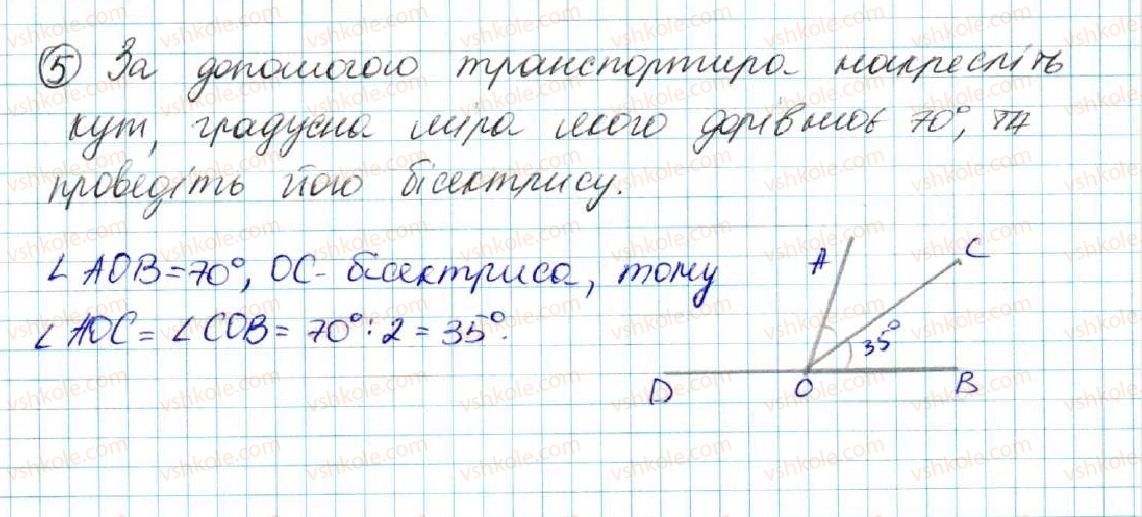 5 За допомогою транспортира накресліть
кут, градусна міра якого дорівнює 70°, та
проведіть його бісектрису.
∠AOB=70°, OC- бісектриса, тому
∠AOC = ∠COB = 70°:2 = 35°.
A
C
35°
D
O
B